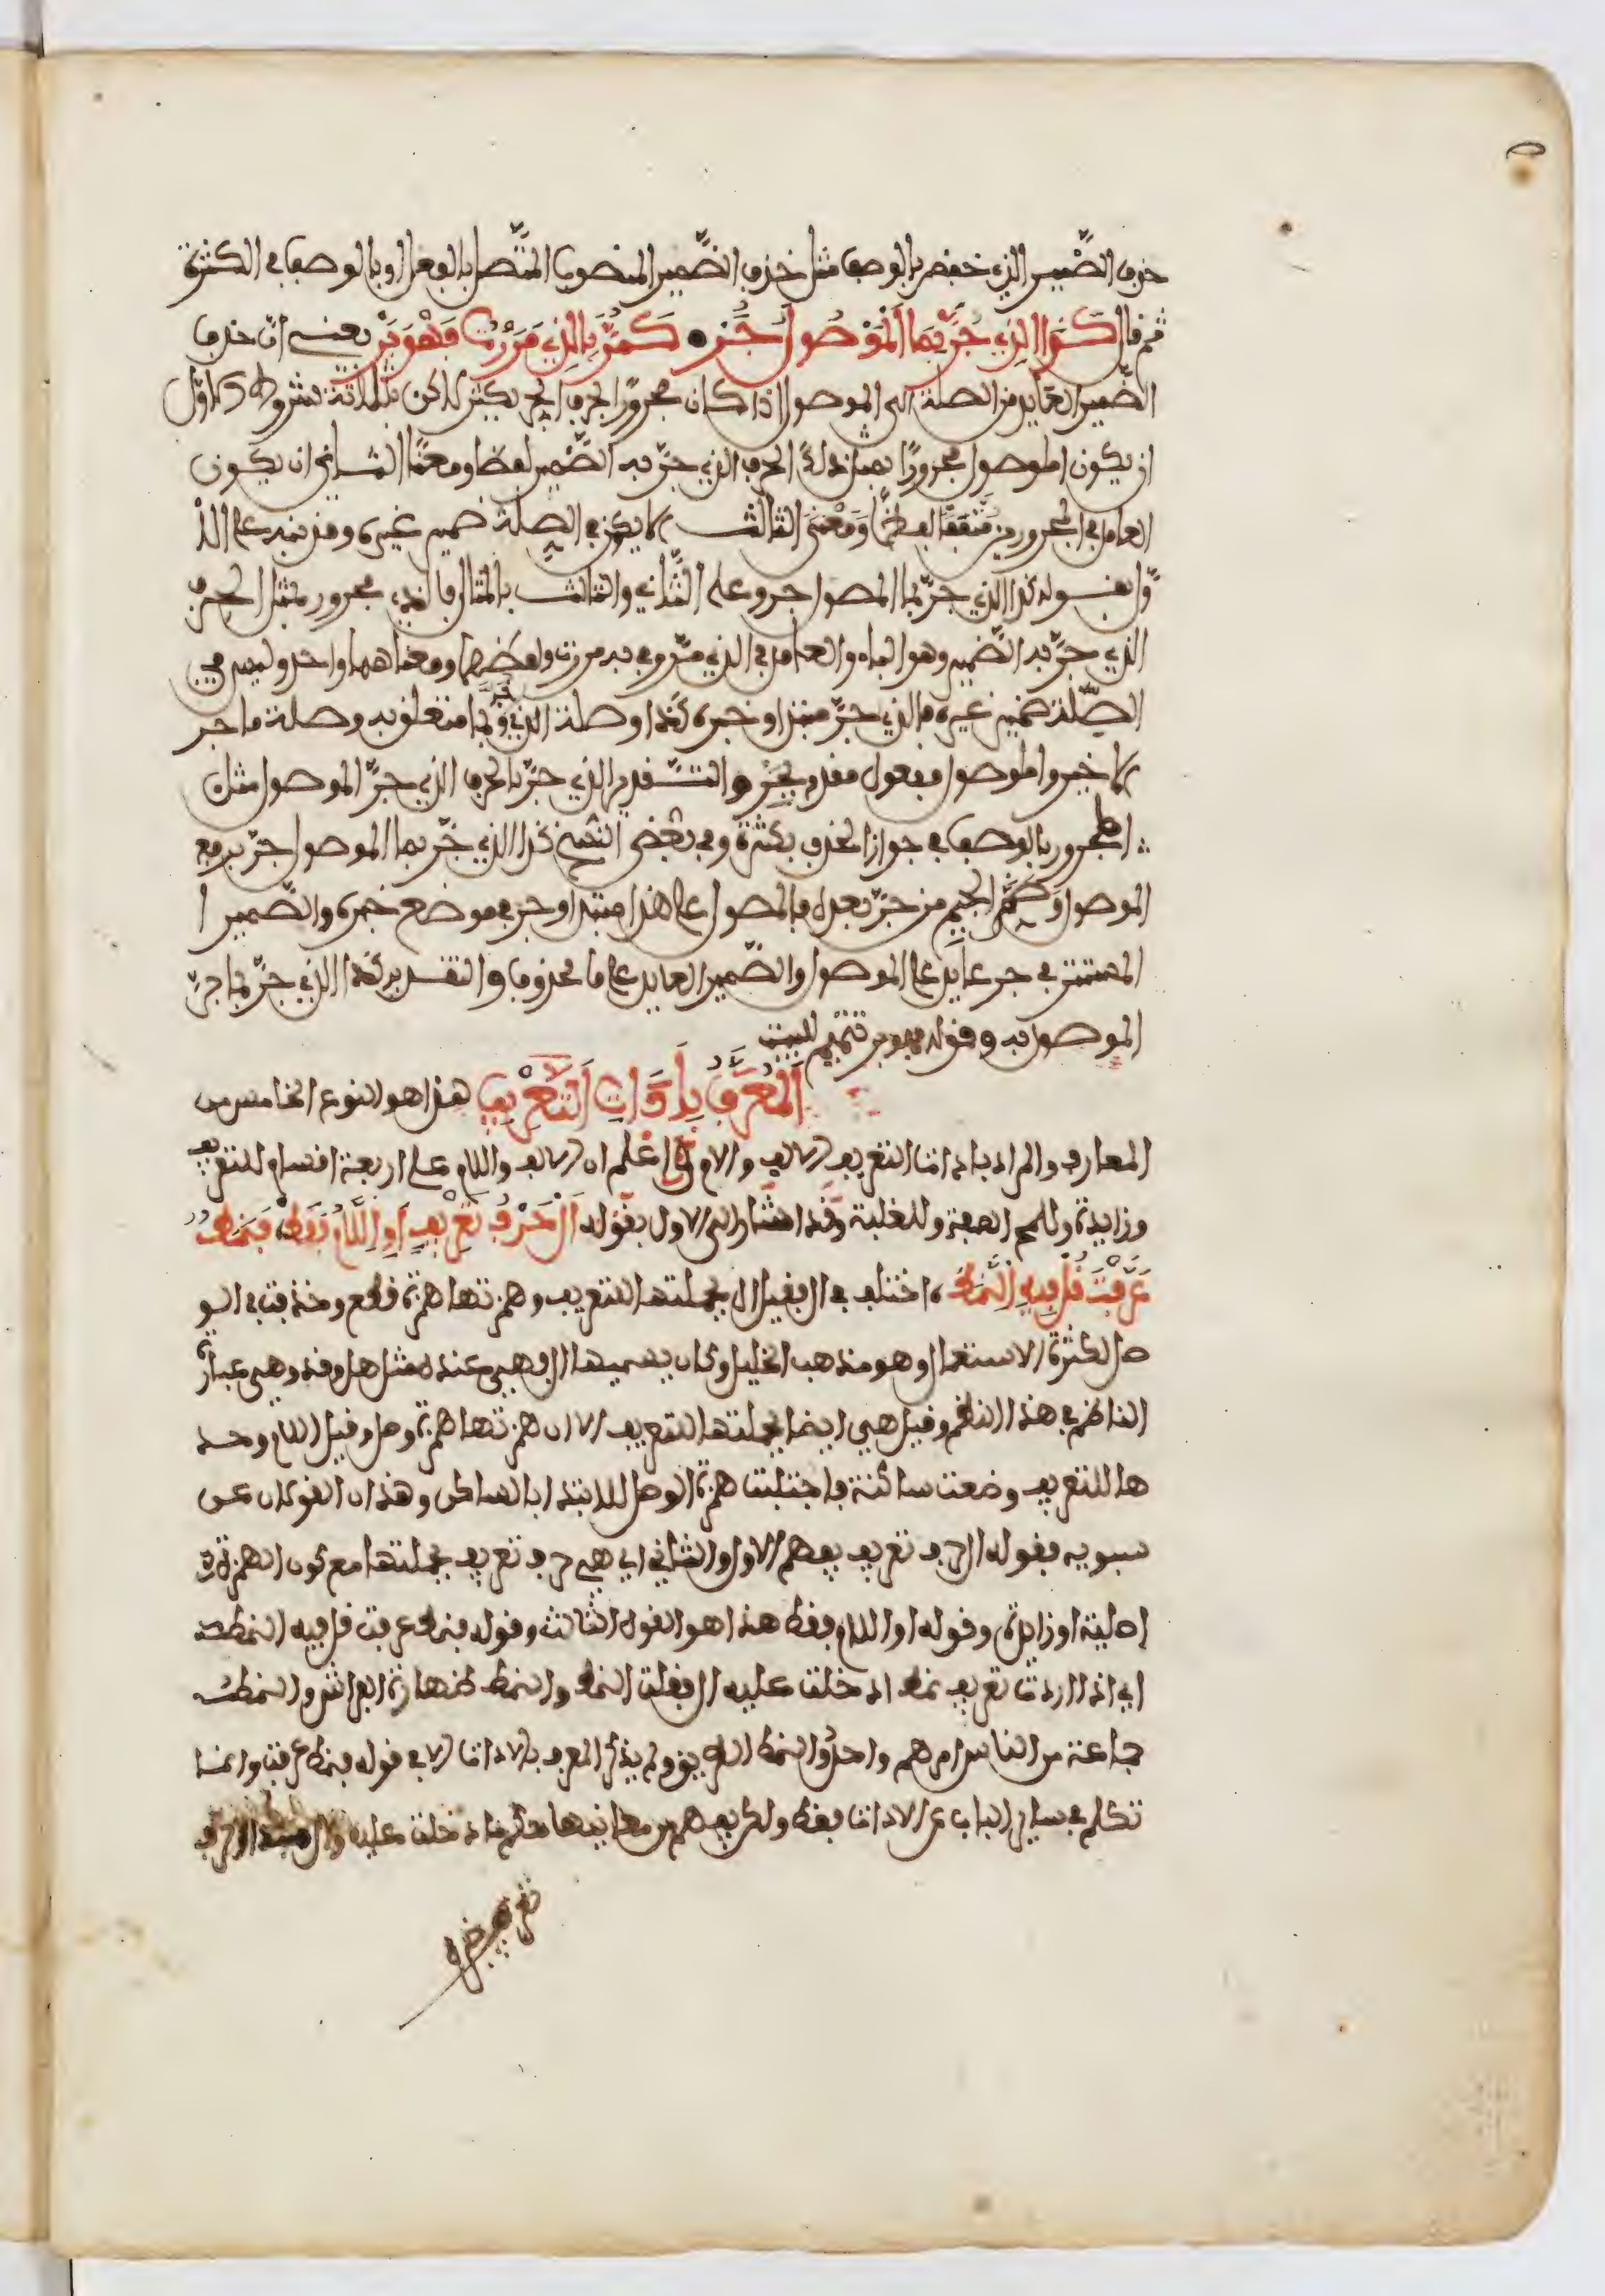 حذف الضَّمير الذي خفض بالوصف مثل حذف الضَّمير المنصوب المتَّصل بالفعل او بالوصف في الكثرة
ثم قال كَذَا الذِي جُرَّ بِمَا الْمَوْصُولَ جَرْ كَمُرَّ بِالذِي مَرَرْتُ فَهْوَ بَرّ يعني انّ حذف
الضَّمير العايد من الصلة الى الموصول اذا كان مجرورًا بحرف الجر يكثر لاكن بثلاثة شروط الاوّل
ان يكون الموصول مجرورًا بمنزلة الحرف الذي جرّ به الضَّمير لفظا ومعنًا الثاني ان يكون
العامل في المجرورين متفقا لفظًا وَمَعْنَى الثالث الا يكون في الصلة ضمير غيره وقد نبه على الا
وّل بقوله كذا الذي جرّ بما الموصول جر وعلى الثَّاني والثالث بالمثال فالذي مجرور بمثل الحرف
الذي جرّ به الضَّمير وهو الباء والعامل في الذي مرّ وفي به مررت ولفظهما ومعناهما واحد وليس في
الصِّلة ضمير غيره فالذي جرّ مبتدا وخبره كذا وصلة الذي جُرَّ وبما متعلق به وصلة ما جر
الاخير والموصول مفعول مقدم بجَرّ والتّقدير الذي جرّ بالحرف الذي جرَّ الموصول مثل
المجرور بالوصف في جواز الحذف بكثرة وفي بعض النسخ كذا الذي جُرّ بما الموصول جرّ برفع
الموصول وَضَمّ الجيم من جرّ بعده فالموصول على هذا مبتدا وجر في موضع خبره والضَّمير ا
المستتر في جر عايد على الموصول والضَّمير العايد على ما محذوف والتقدير كذا الذي جرّ بما جرّ
الموصول به وقوله فهو بر تتميم للبيت
اَلْمُعَرَّفُ بِأَدَوَاتِ التَّعْرِيفِ هذا هو النوع الخامس من
المعارف والمراد باداة التعريف الالف والام اعلم ان الالف واللام على اربعة اقسام للتعريف
وزايدة وللمح الصفة وللغلبة وقد اشار الى الاول بقوله اَلْ حَرْفُ تَعْرِيفٍ اَوِ اللَّامُ فَقَطْ فَنَمَطٌ
عَرَّفْتَ قُلْ فِيهِ النَّمَطْ اختلف في ال فقيل ال بجملتها للتعريف وهمزتها همزة قطع وحذفت في الو
صل لكثرة الاستعمال وهو مذهب الخليل وكان يسميها ال فهي عنده مثل هل وقد وهي عبارة
الناظم في هذا النظم وقيل هي ايضا بجملتها للتعريف الا ان همزتها همزة وصل وقيل اللام وحد
ها للتعريف وضعت ساكنة فاجتلبت همزة الوصل للابتدا بالساكن وهذان القولان عن
سبويه فقوله ال حرف تعريف يفهم الاول والثاني اي هي حرف تعريف بجملتها مع كون الهمزة
اصلية او زايدة وقوله او اللام فقط هذا هو القول الثالث وقوله فنمط عرفت قل فيه النمط
اي اذا اردت تعريف نمط ادخلت عليه ال فقلت النمط والنمط ظهارة الفراش والنمط
جماعة من الناس امرهم واحد والنمط الطريق ولم يذكر المعرف بالاداة الا في قوله فنمط عرفت وانما
تكلم في ساير الباب على الاداة فقط ولكن يفهم من معانيها حكم ما دخلت عليه
تعريف خبره